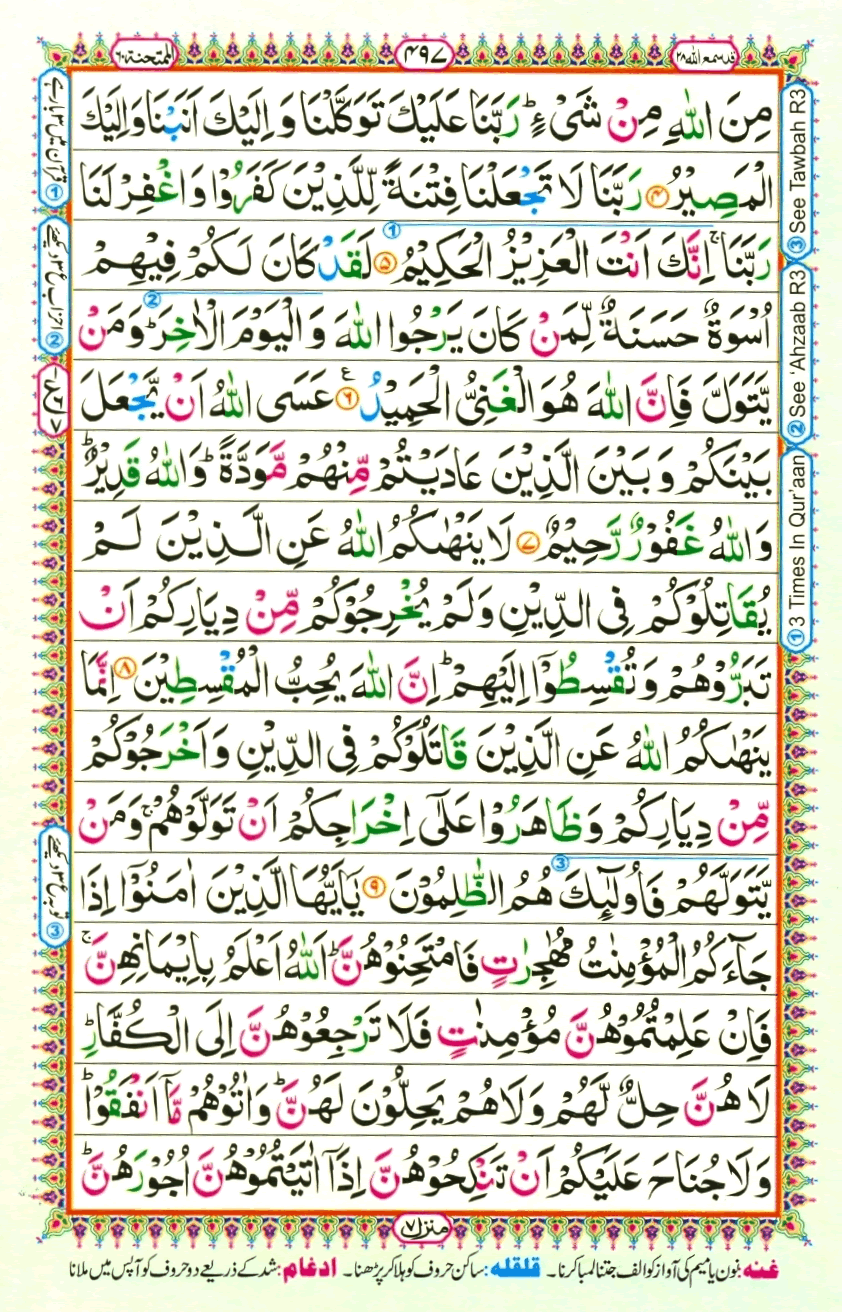 قد سمع الله ٢٨
٤٩٧
الممتحنة ٦٠
مِنَ اللّٰهِ مِنْ شَیْءٍ ؕ رَبَّنَا عَلَيْكَ تَوَكَّلْنَا وَ اِلَيْكَ اَنَبْنَا وَاِلَيْكَ
الْمَصِيْرُ ۴ رَبَّنَا لَا تَجْعَلْنَا فِتْنَةً لِّلَّذِيْنَ كَفَرُوْا وَاغْفِرْ لَنَا
رَبَّنَا ۚ اِنَّكَ اَنْتَ الْعَزِيْزُ الْحَكِيْمُ ۵ لَقَدْ كَانَ لَكُمْ فِيْهِمْ
اُسْوَةٌ حَسَنَةٌ لِّمَنْ كَانَ يَرْجُوا اللّٰهَ وَالْيَوْمَ الْاٰخِرَ ؕ وَمَنْ
يَّتَوَلَّ فَاِنَّ اللّٰهَ هُوَ الْغَنِیُّ الْحَمِيْدُ ۶ عَسَى اللّٰهُ اَنْ يَّجْعَلَ
بَيْنَكُمْ وَ بَيْنَ الَّذِيْنَ عَادَيْتُمْ مِّنْهُمْ مَّوَدَّةً ؕ وَاللّٰهُ قَدِيْرٌ ؕ
وَاللّٰهُ غَفُوْرٌ رَّحِيْمٌ ۷ لَا يَنْهٰىكُمُ اللّٰهُ عَنِ الَّذِيْنَ لَمْ
يُقَاتِلُوْكُمْ فِی الدِّيْنِ وَلَمْ يُخْرِجُوْكُمْ مِّنْ دِيَارِكُمْ اَنْ
تَبَرُّوْهُمْ وَتُقْسِطُوْۤا اِلَيْهِمْ ؕ اِنَّ اللّٰهَ يُحِبُّ الْمُقْسِطِيْنَ ۸ اِنَّمَا
يَنْهٰىكُمُ اللّٰهُ عَنِ الَّذِيْنَ قَاتَلُوْكُمْ فِی الدِّيْنِ وَاَخْرَجُوْكُمْ
مِّنْ دِيَارِكُمْ وَظَاهَرُوْا عَلٰۤى اِخْرَاجِكُمْ اَنْ تَوَلَّوْهُمْ ۚ وَمَنْ
يَّتَوَلَّهُمْ فَاُولٰٓئِكَ هُمُ الظّٰلِمُوْنَ ۹ يٰۤاَيُّهَا الَّذِيْنَ اٰمَنُوْۤا اِذَا
جَآءَكُمُ الْمُؤْمِنٰتُ مُهٰجِرٰتٍ فَامْتَحِنُوْهُنَّ ؕ اَللّٰهُ اَعْلَمُ بِاِيْمَانِهِنَّ ۚ
فَاِنْ عَلِمْتُمُوْهُنَّ مُؤْمِنٰتٍ فَلَا تَرْجِعُوْهُنَّ اِلَى الْكُفَّارِ ؕ
لَا هُنَّ حِلٌّ لَّهُمْ وَلَا هُمْ يَحِلُّوْنَ لَهُنَّ ؕ وَاٰتُوْهُمْ مَّاۤ اَنْفَقُوْا ؕ
وَلَا جُنَاحَ عَلَيْكُمْ اَنْ تَنْكِحُوْهُنَّ اِذَاۤ اٰتَيْتُمُوْهُنَّ اُجُوْرَهُنَّ ؕ
منزل ۷
غنه: نون یا میم کی آواز کو الف جتنا لمبا کرنا۔ قلقله: ساکن حروف کو ہلا کر پڑھنا۔ ادغام: شد کے ذریعے دو حروف کو آپس میں ملانا
③ See Tawbah R3
② See 'Ahzaab R3
① 3 Times In Qur'aan
① قرآن میں ۳ بار ہے
② احزاب ع ۳ دیکھئے
③ توبہ ع ۳ دیکھئے